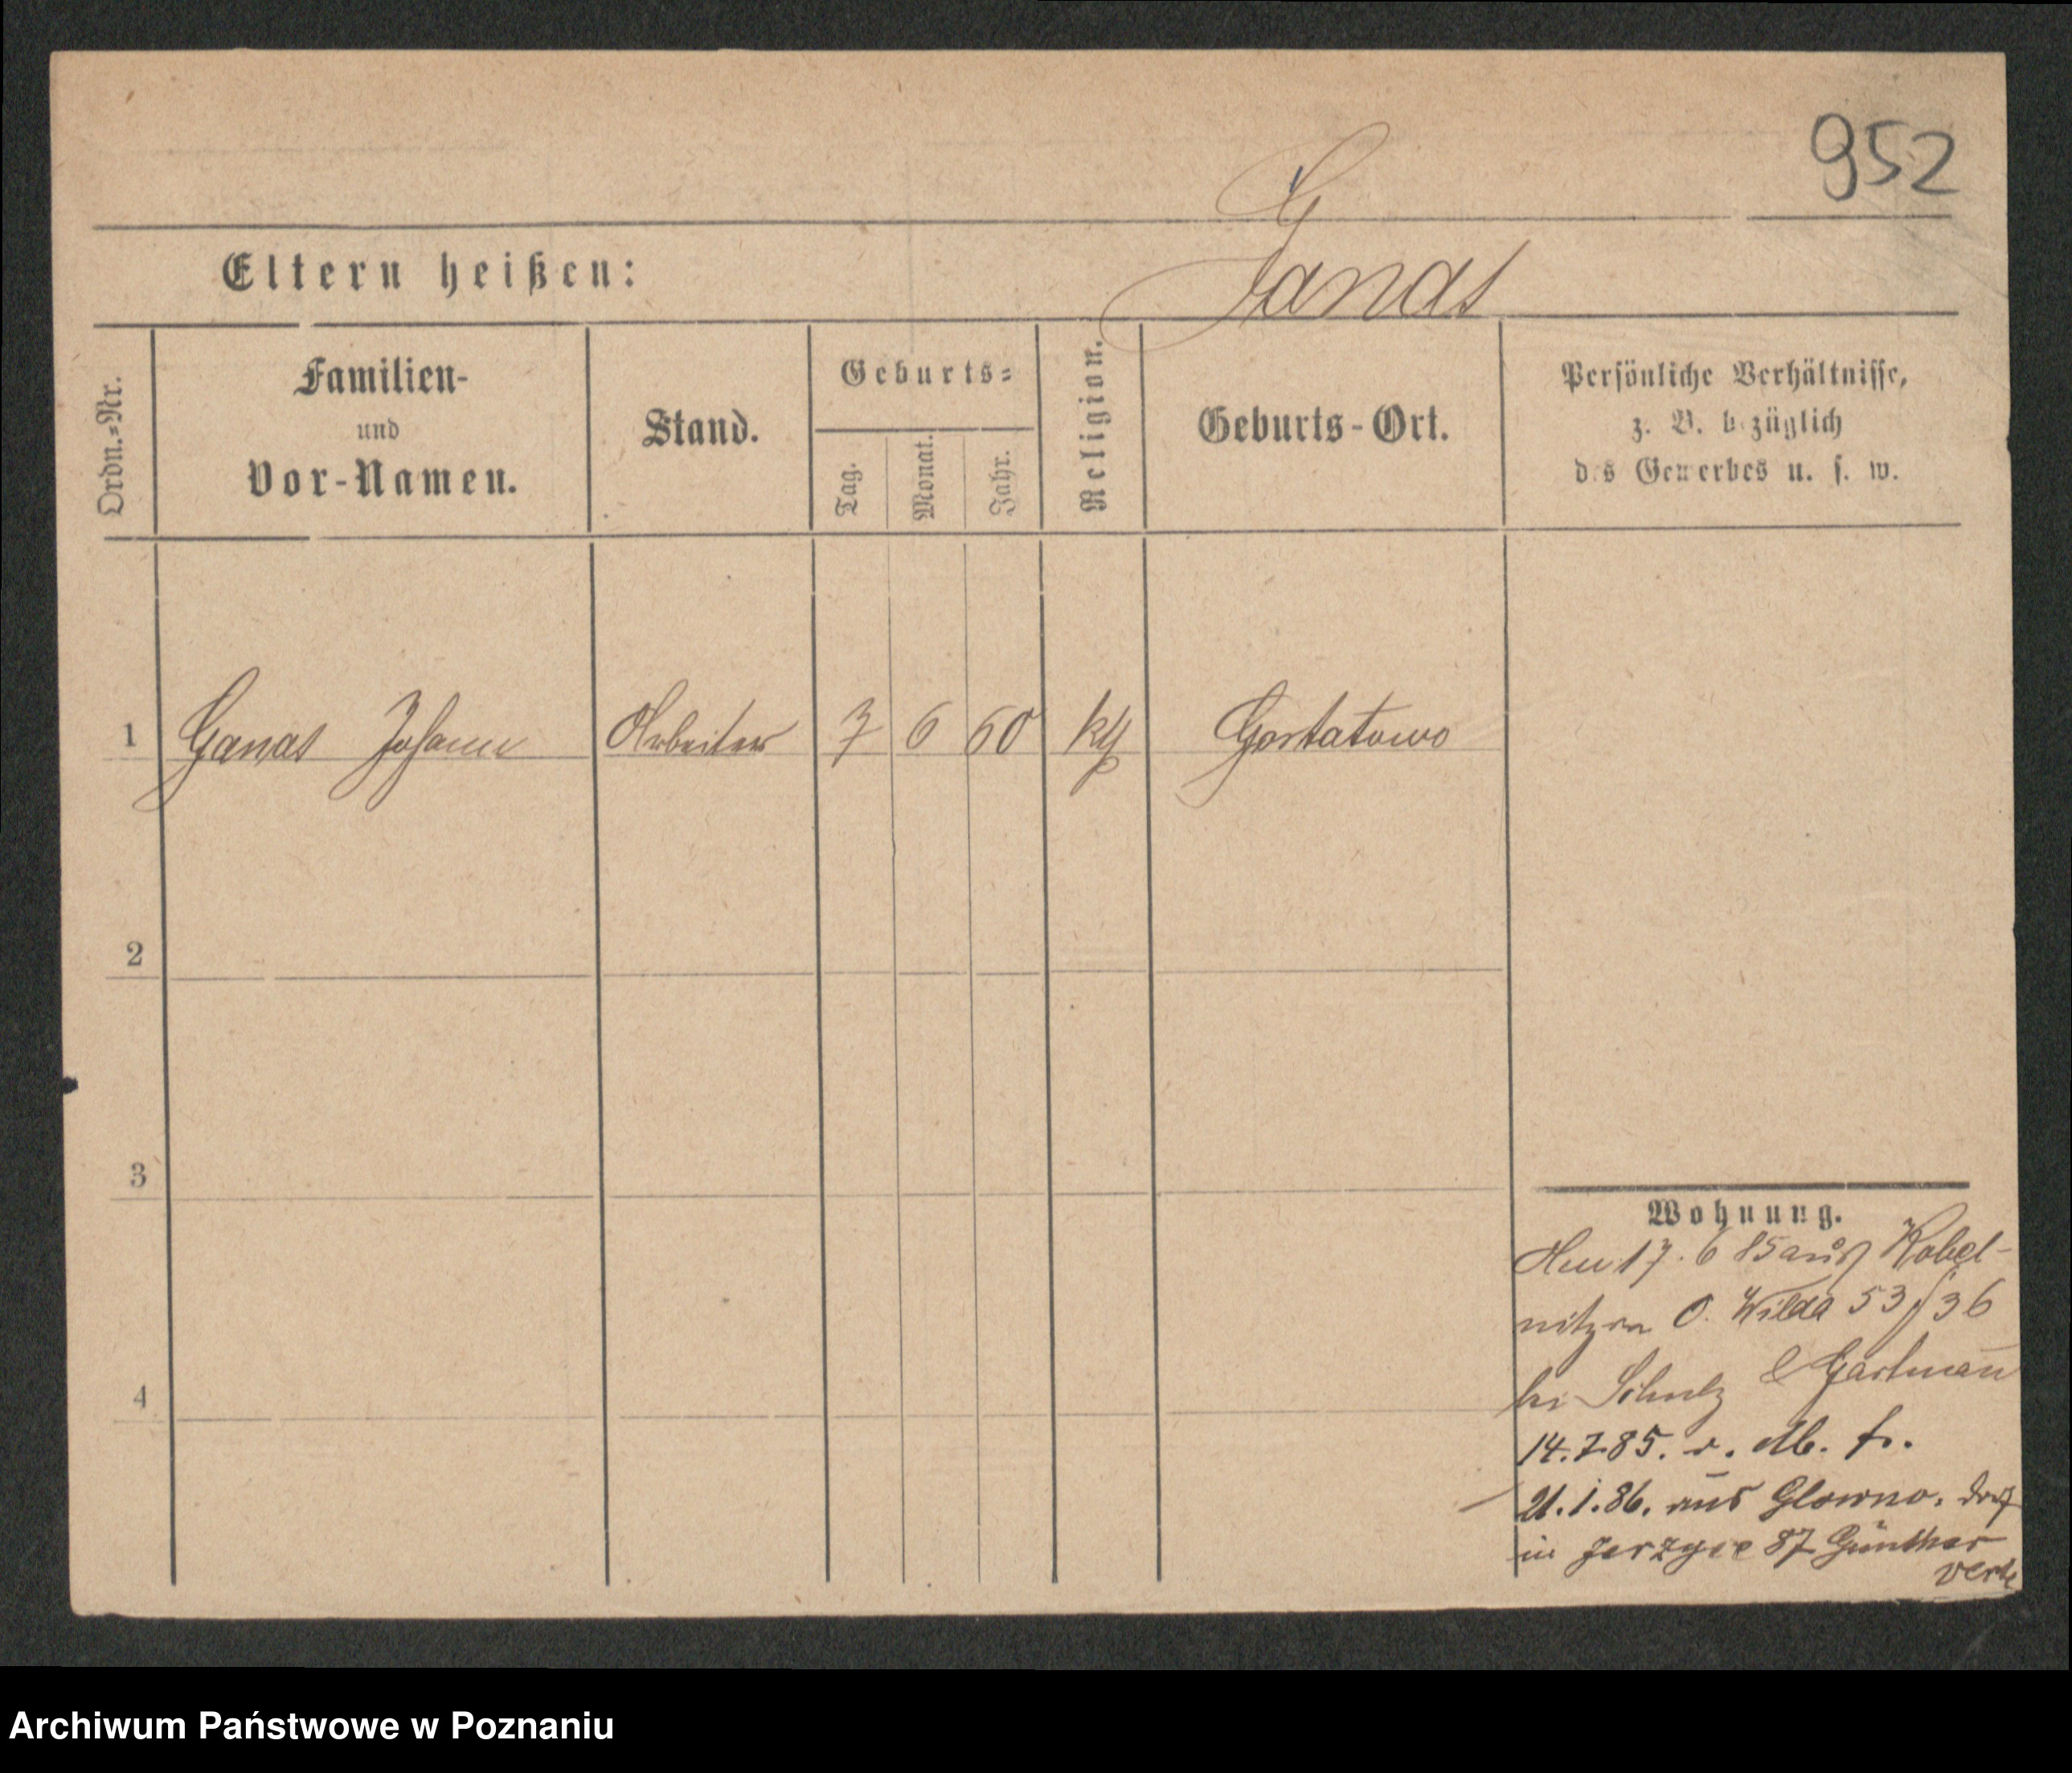 952
G
Eltern heißen:
Ganas
Ordn.=Nr.
Familien-
und
Vor-Namen.
Stand.
Geburts=
Tag.
Monat.
Jahr.
Religion.
Geburts-Ort.
Persönliche Verhältnisse,
z. B. bezüglich
des Gewerbes u. s. w.
1 Ganas Johann Arbeiter 7 6 60 kg Gortatowo
2
3
4
Wohnung.
17. 6 85 aus Kobel-
nitz O. Wilda 53 / 36
bei Schulz
14.7.85. v. Ab. fr.
21.1.86. aus Glowno.
in Jerzyce 87 Günther
verte
Archiwum Państwowe w Poznaniu